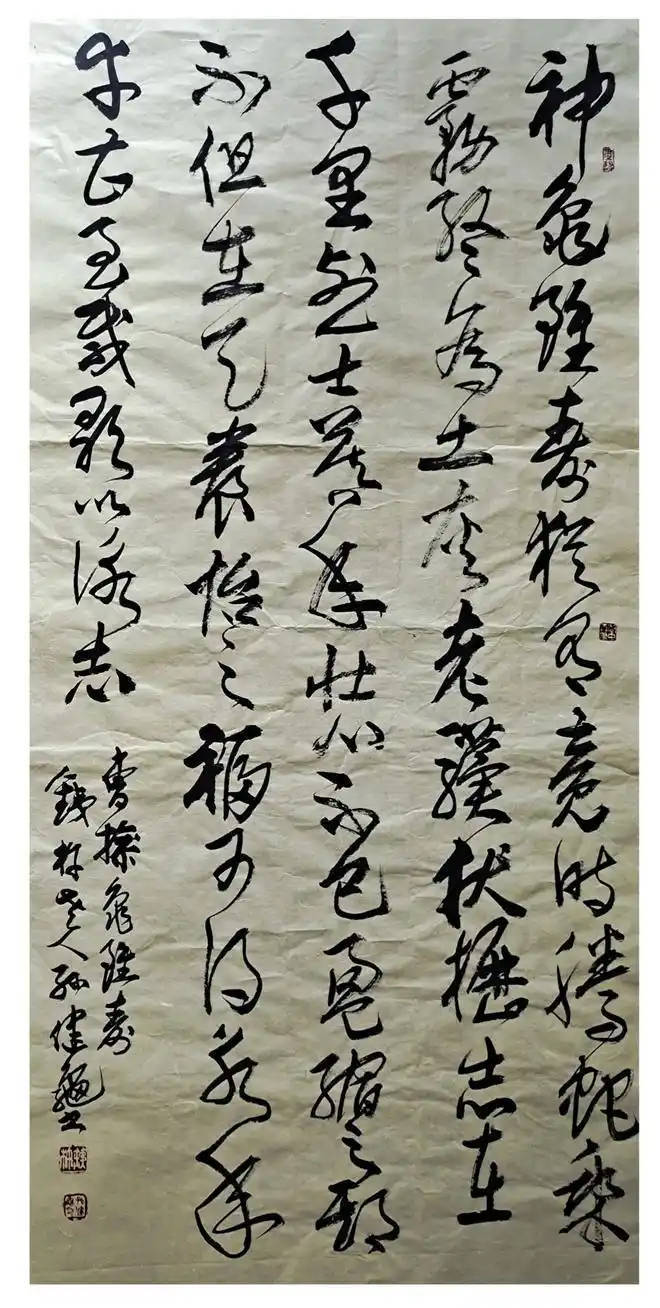 神龜雖壽猶有竟時騰蛇乘
霧終為土灰老驥伏櫪志在
千里烈士暮年壯心不已盈縮之期
不但在天養怡之福可得永年
幸甚至哉歌以詠志
曹操龜雖壽
老人孫健書